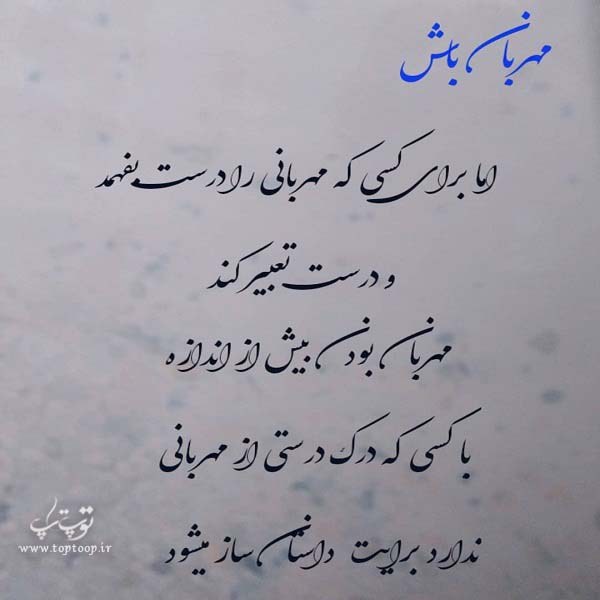 مهربان باش
اما برای کسی که مهربانی را درست بفهمد
و درست تعبیر کند
مهربان بودن بیش از اندازه
با کسی که درک درستی از مهربانی
ندارد برایت داستان ساز میشود
توپتاپ
www.toptoop.ir